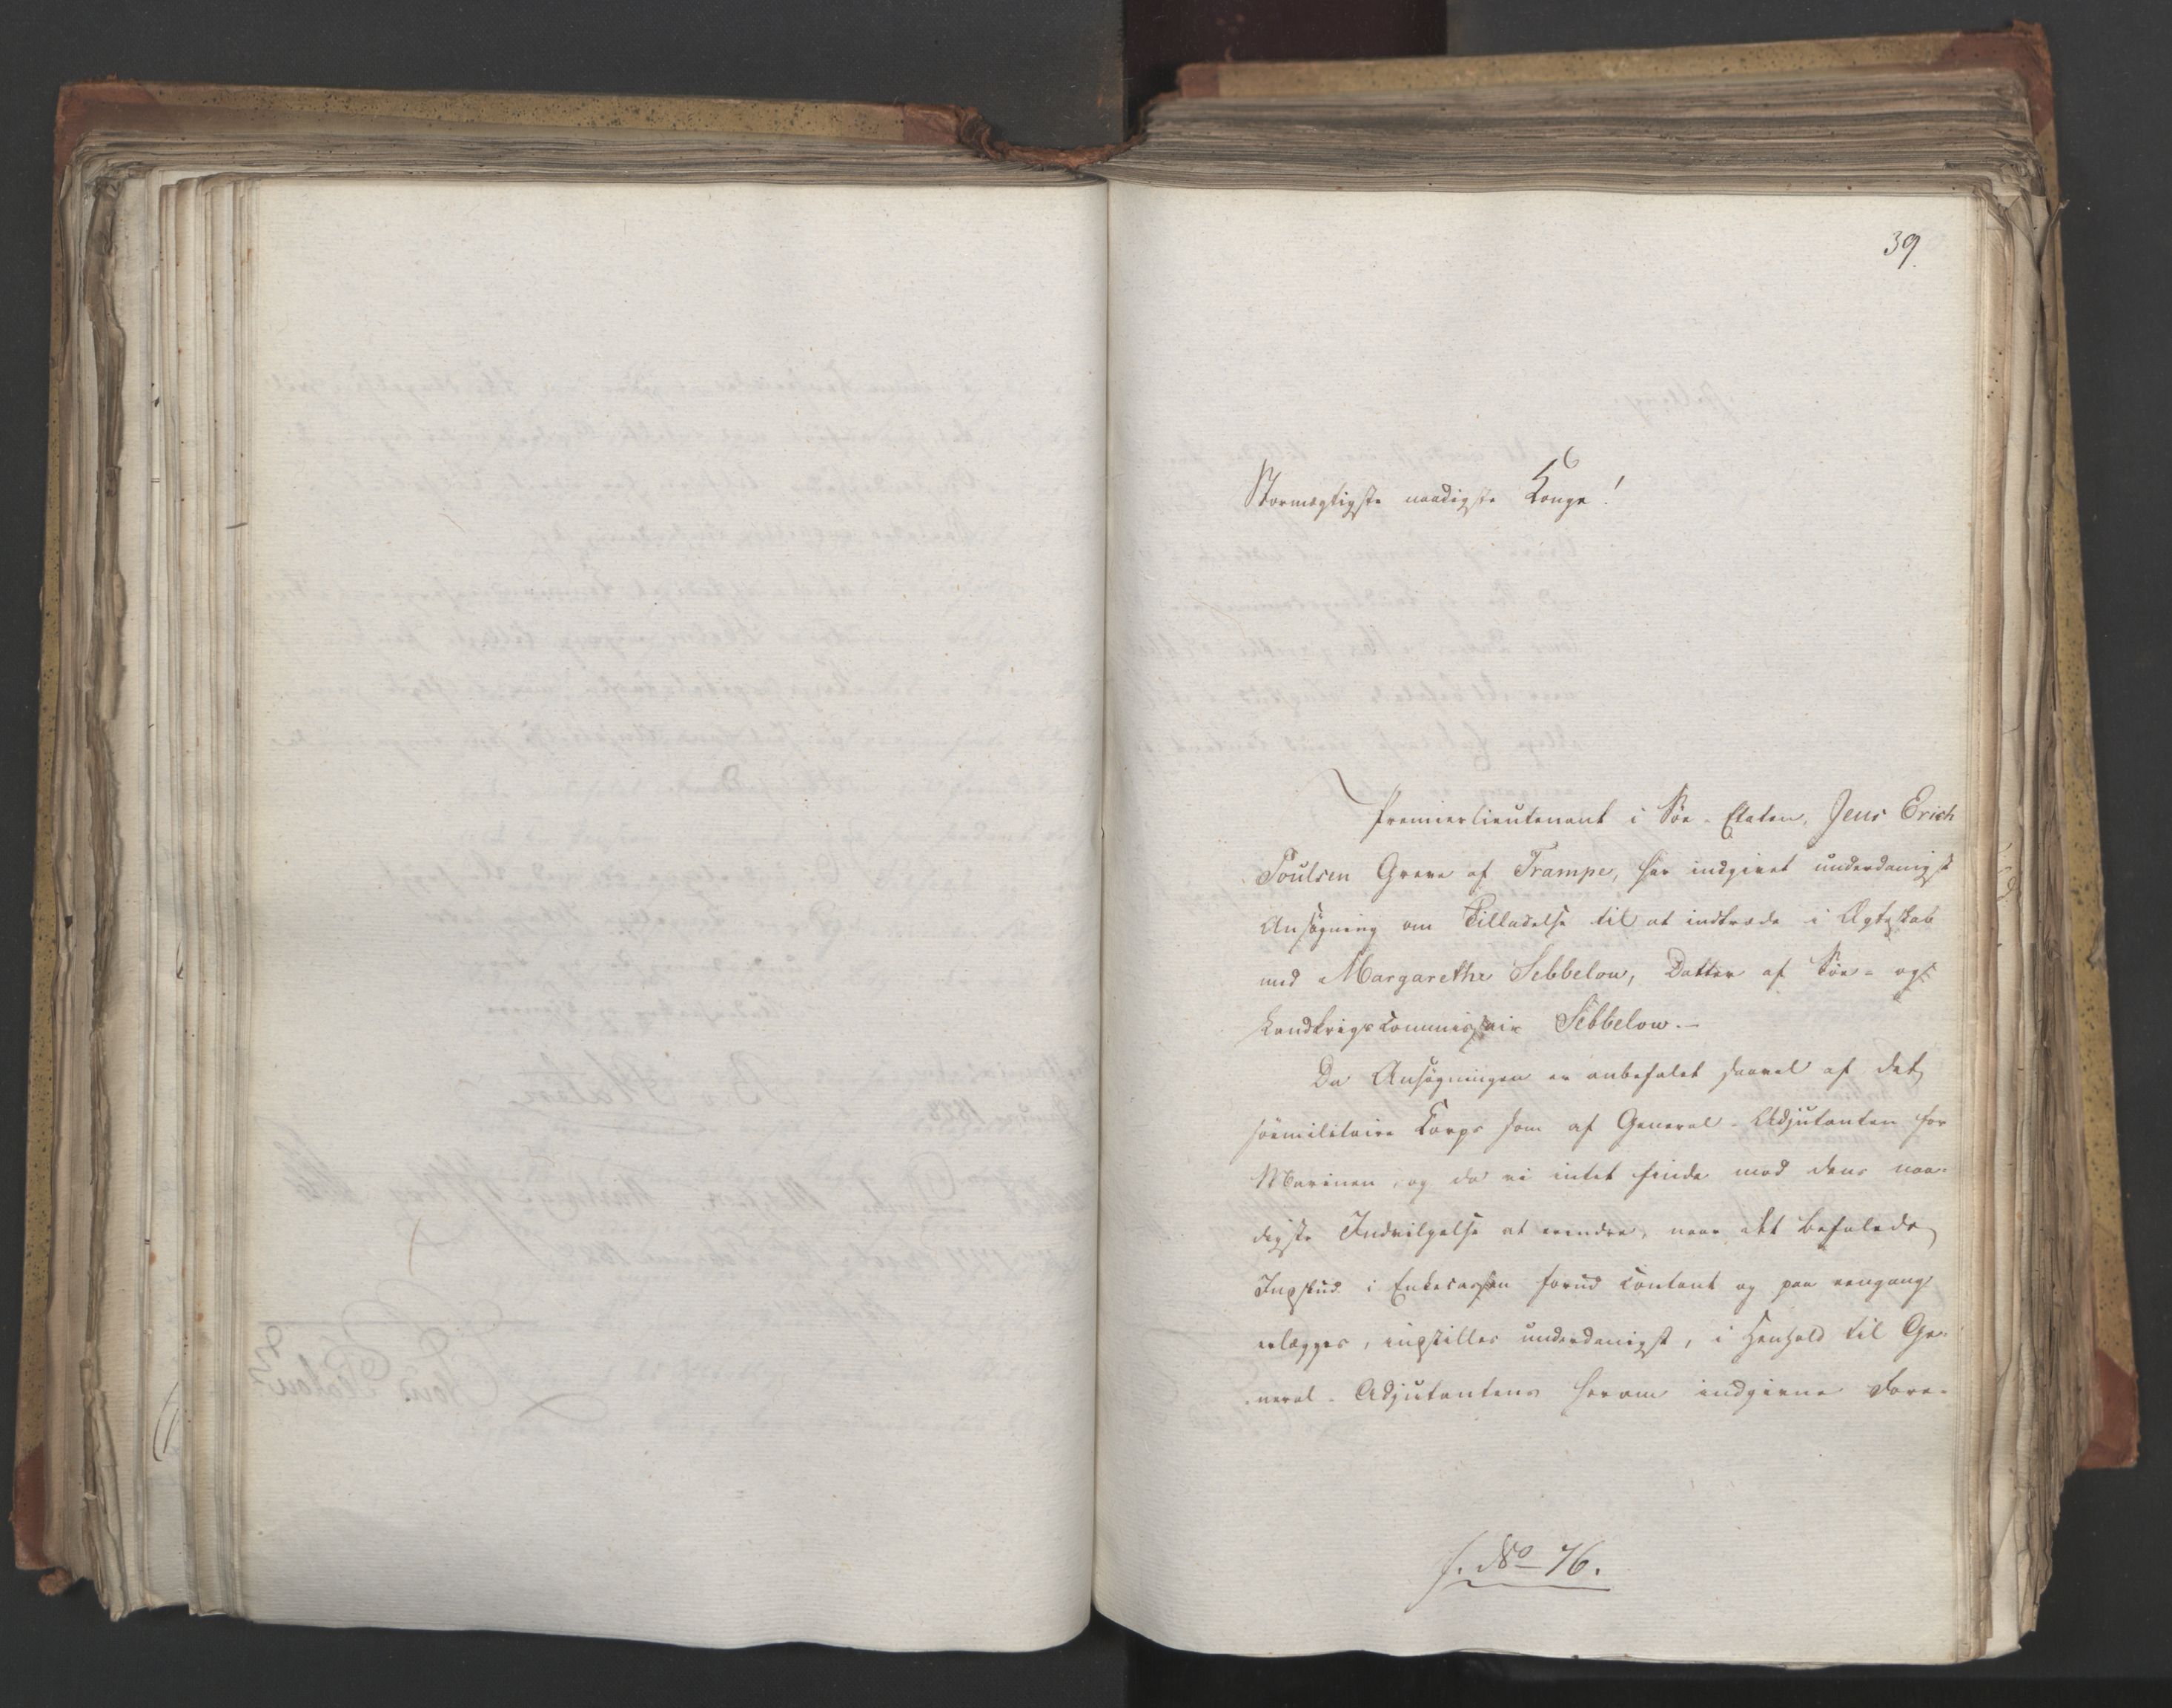 39.
Stormægtigste naadigste Konge!
Premierlieutenant i Søe-Etaten, Jens Erich
Poulsen Greve af Trampe, har indgivet underdanigst
Ansøgning om Tilladelse til at indtræde i Ægteskab
med Margarethe Sebbelow, Datter af Søe- og
Landkrigscommissair Sebbelow.-
Da Ansøgningen er anbefalet saavel af det
søemilitaire Corps som af General-Adjutanten for
Marinen, og da vi intet finde mod dens naa-
digste Indvilgelse at erindre, naar det befalede
Indskud i Enkecassen forud contant og paa eengang
erlægges, indstilles underdanigst, i Henhold til Ge-
neral-Adjutantens herom indgivne Fore-
f. No 76.